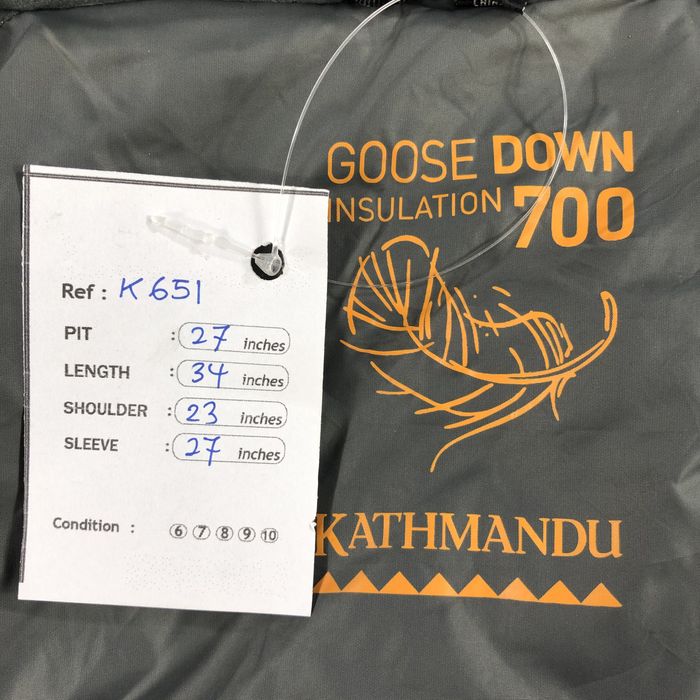 GOOSE DOWN
INSULATION 700
Ref : K651
PIT : 27 inches
LENGTH : 34 inches
SHOULDER : 23 inches
SLEEVE : 27 inches
Condition : 6 7 8 9 10
KATHMANDU